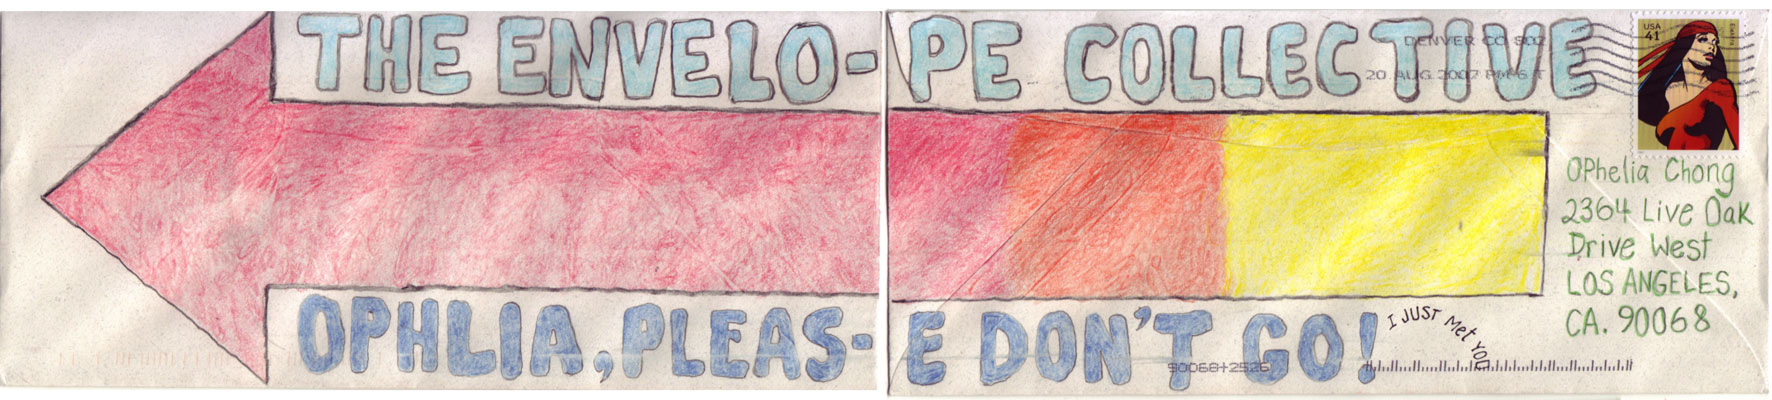 THE ENVELO-PE COLLECTIVE
DENVER CO 802
20 AUG 2007 PM 6 T
USA
41
Elektra
OPhelia Chong
2364 Live Oak
Drive West
LOS ANGELES,
CA. 90068
OPHLIA, PLEAS-E DON'T GO!
I JUST Met YOU
90068+2526